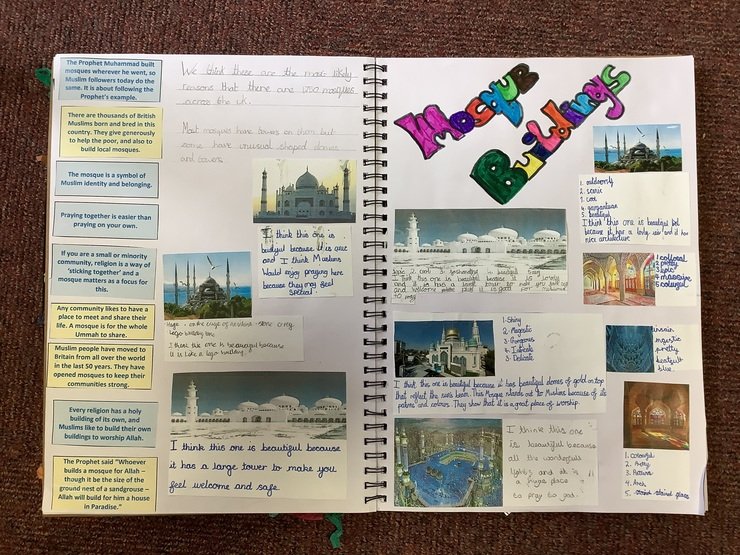 The Prophet Muhammad built
mosques wherever he went, so
Muslim followers today do the
same. It is about following the
Prophet's example.
There are thousands of British
Muslims born and bred in this
country. They give generously
to help the poor, and also to
build local mosques.
The mosque is a symbol of
Muslim identity and belonging.
Praying together is easier than
praying on your own.
If you are a small or minority
community, religion is a way of
'sticking together' and a
mosque matters as a focus for
this.
Any community likes to have a
place to meet and share their
life. A mosque is for the whole
Ummah to share.
Muslim people have moved to
Britain from all over the world
in the last 50 years. They have
opened mosques to keep their
communities strong.
Every religion has a holy
building of its own, and
Muslims like to build their own
buildings to worship Allah.
The Prophet said "Whoever
builds a mosque for Allah –
though it be the size of the
ground nest of a sandgrouse –
Allah will build for him a house
in Paradise."
We think these are the most likely
reasons that there are 1750 mosques
across the uk.
Most mosques have towers on them but
some have unusual shaped domes
and towers
I think this one is
because it is
and I think Muslims
Would enjoy praying here
because they may feel
special.
Huge
I think this one is beautiful because
it is like a lego building.
I think this one is beautiful because
it has a large tower to make you
feel welcome and safe.
Mosque
Buildings
1.
2. scenic
3. cool
4. gargantuan
5. beautiful
I think this one is beautiful
because it has a view and it has
nice architecture
2 cool 4 beautiful
this one is beautiful because it is lovely
and it has a large tower to make you feel safe
and welcome
to pray
1. colloral
2. pretty
3.
4. massive
5. colourful
1. Shiny
2. Magestic
3. Gorgeous
4. Intricate
5. Delicate
I think this one is beautiful because it has beautiful domes of gold on top
that reflect the suns beam. This Mosque stands out to Muslims because of its
and colours. They show that it is a great place of worship.
pretty
blue
I think this one
is beautiful because
all the wonderful
lights and it is
a huge place
to pray to god.
1. Colourful
2. Pretty
3. Pattern
4. Arch
5. stained glass